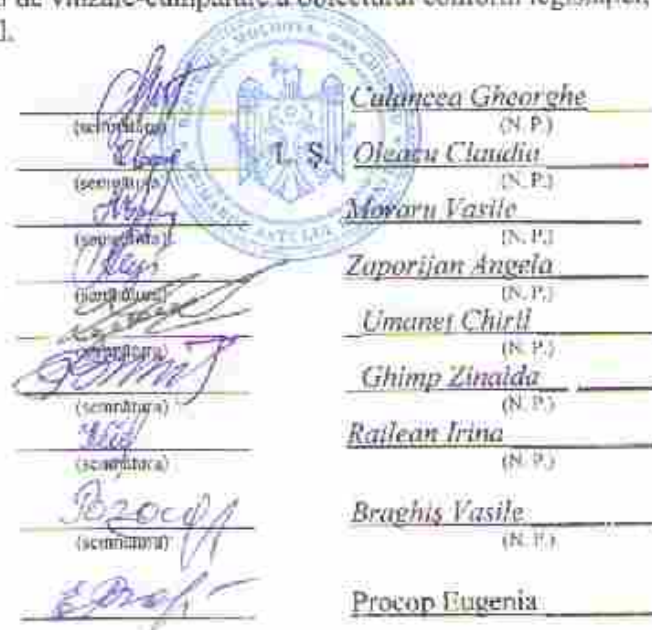 de vînzare-cumpărare a obiectului conform legislației,
Culancea Gheorghe
(semnătura) (N. P.)
L. Ș. Oleacu Claudia
(semnătura) (N. P.)
Moraru Vasile
(semnătura) (N. P.)
Zaporijan Angela
(semnătura) (N. P.)
Umaneț Chiril
(semnătura) (N. P.)
Ghimp Zinaida
(semnătura) (N. P.)
Railean Irina
(semnătura) (N. P.)
Braghiș Vasile
(semnătura) (N. P.)
Procop Eugenia